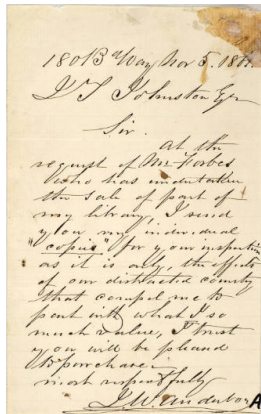 1801 Bway Nov 5. 1861.
J T Johnston Esqr
Sir.
At the
request of Mr Forbes
who has undertaken
the sale of part of
my library, I send
you my individual
"copies" for your inspection
as it is only the effects
of our distracted country
that compel me to
part with what I so
much value, I trust
you will be pleased
to purchase.
most respectfully
A